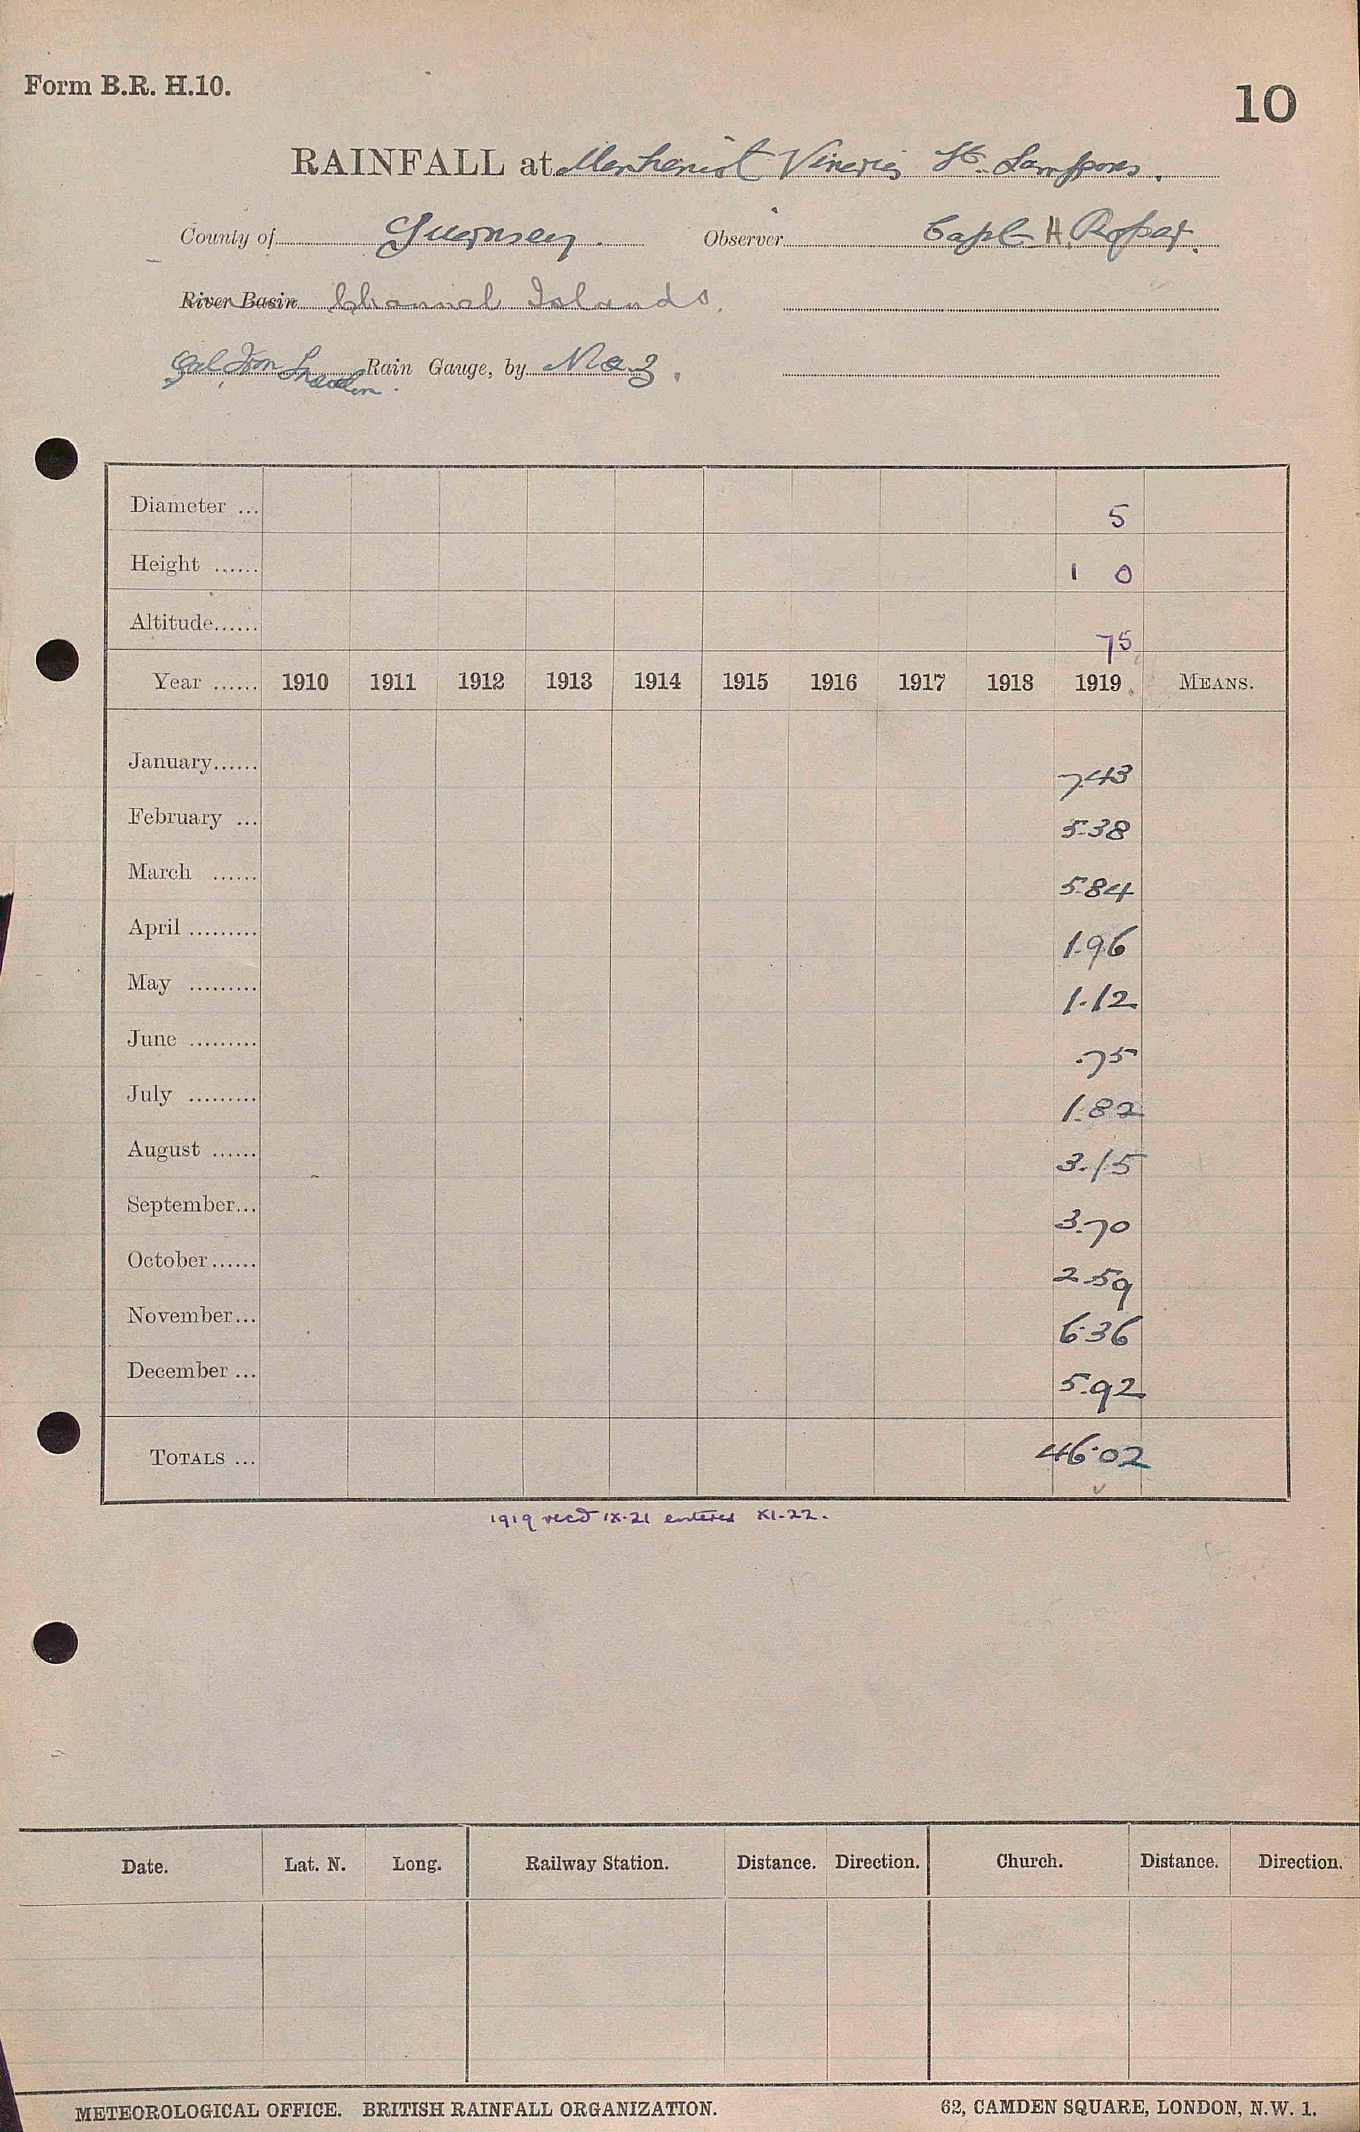 Form B.R. H.10.
10
RAINFALL at Vineries St. Sampsons.
County of Guernsey. Observer Capt H. Roper.
River Basin Channel Islands.
Gal Iron Snowdon. Rain Gauge, by Neg.
Diameter ... 5
Height ...... 1 0
Altitude...... 75
Year ...... 1910 1911 1912 1913 1914 1915 1916 1917 1918 1919 MEANS.
January...... 7.43
February ... 5.38
March ...... 5.84
April ......... 1.96
May ......... 1.12
June ......... .75
July ......... 1.82
August ...... 3.15
September... 3.70
October...... 2.59
November... 6.36
December ... 5.92
TOTALS ... 46.02
1919 recd IX.21 entered XI.22.
Date. Lat. N. Long. Railway Station. Distance. Direction. Church. Distance. Direction.
METEOROLOGICAL OFFICE. BRITISH RAINFALL ORGANIZATION. 62, CAMDEN SQUARE, LONDON, N.W. 1.